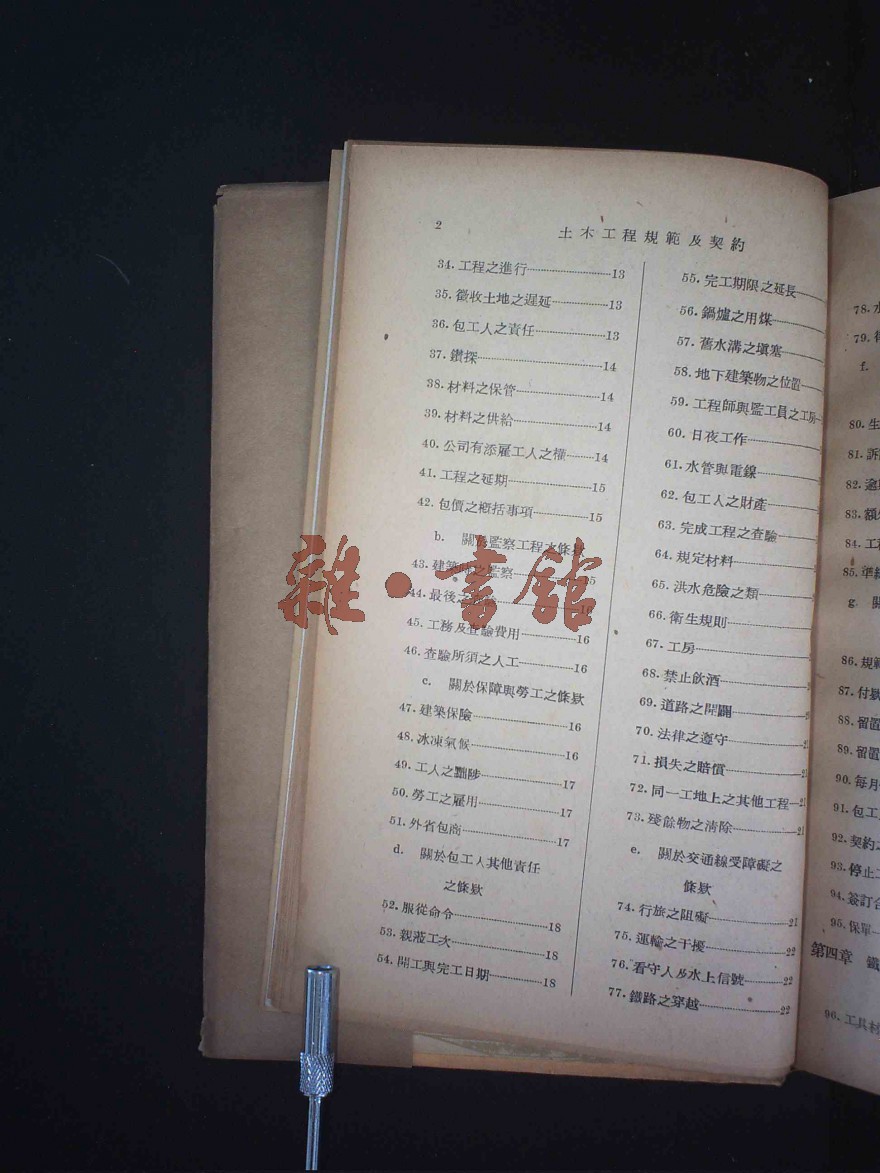 2
土木工程規範及契約
34.工程之進行……13
35.徵收土地之遲延……13
36.包工人之責任……13
37.鑽探……14
38.材料之保管……14
39.材料之供給……14
40.公司有添雇工人之權……14
41.工程之延期……15
42.包價之概括事項……15
b. 關於監察工程之條欵
43.建築 之監察……15
44.最後之……16
45.工務及查驗費用……16
46.查驗所須之人工……16
c. 關於保障與勞工之條欵
47.建築保險……16
48.冰凍氣候……16
49.工人之黜陟……17
50.勞工之雇用……17
51.外省包商……17
d. 關於包工人其他責任
之條欵
52.服從命令……18
53.親蒞工次……18
54.開工與完工日期……18
55.完工期限之延長
56.鍋爐之用煤
57.舊水溝之塡塞
58.地下建築物之位置
59.工程師與監工員之工房
60.日夜工作
61.水管與電線
62.包工人之財產
63.完成工程之查驗
64.規定材料
65.洪水危險之類
66.衛生規則
67.工房
68.禁止飲酒
69.道路之開闢
70.法律之遵守
71.損失之賠償
72.同一工地上之其他工程……21
73.殘餘物之清除……21
e. 關於交通線受障礙之
條欵
74.行旅之阻礙……21
75.運輸之干擾……22
76.看守人及水上信號……22
77.鐵路之穿越……22
78.水
79.
f.
80.生
81.訴
82.逾
83.額
84.工
85.準
g. 關
86.規
87.付欵
88.留置
89.留置
90.每月
91.包工
92.契約
93.停止工
94.簽訂合
95.保單
第四章 鐵
96.工具材
雜·書館